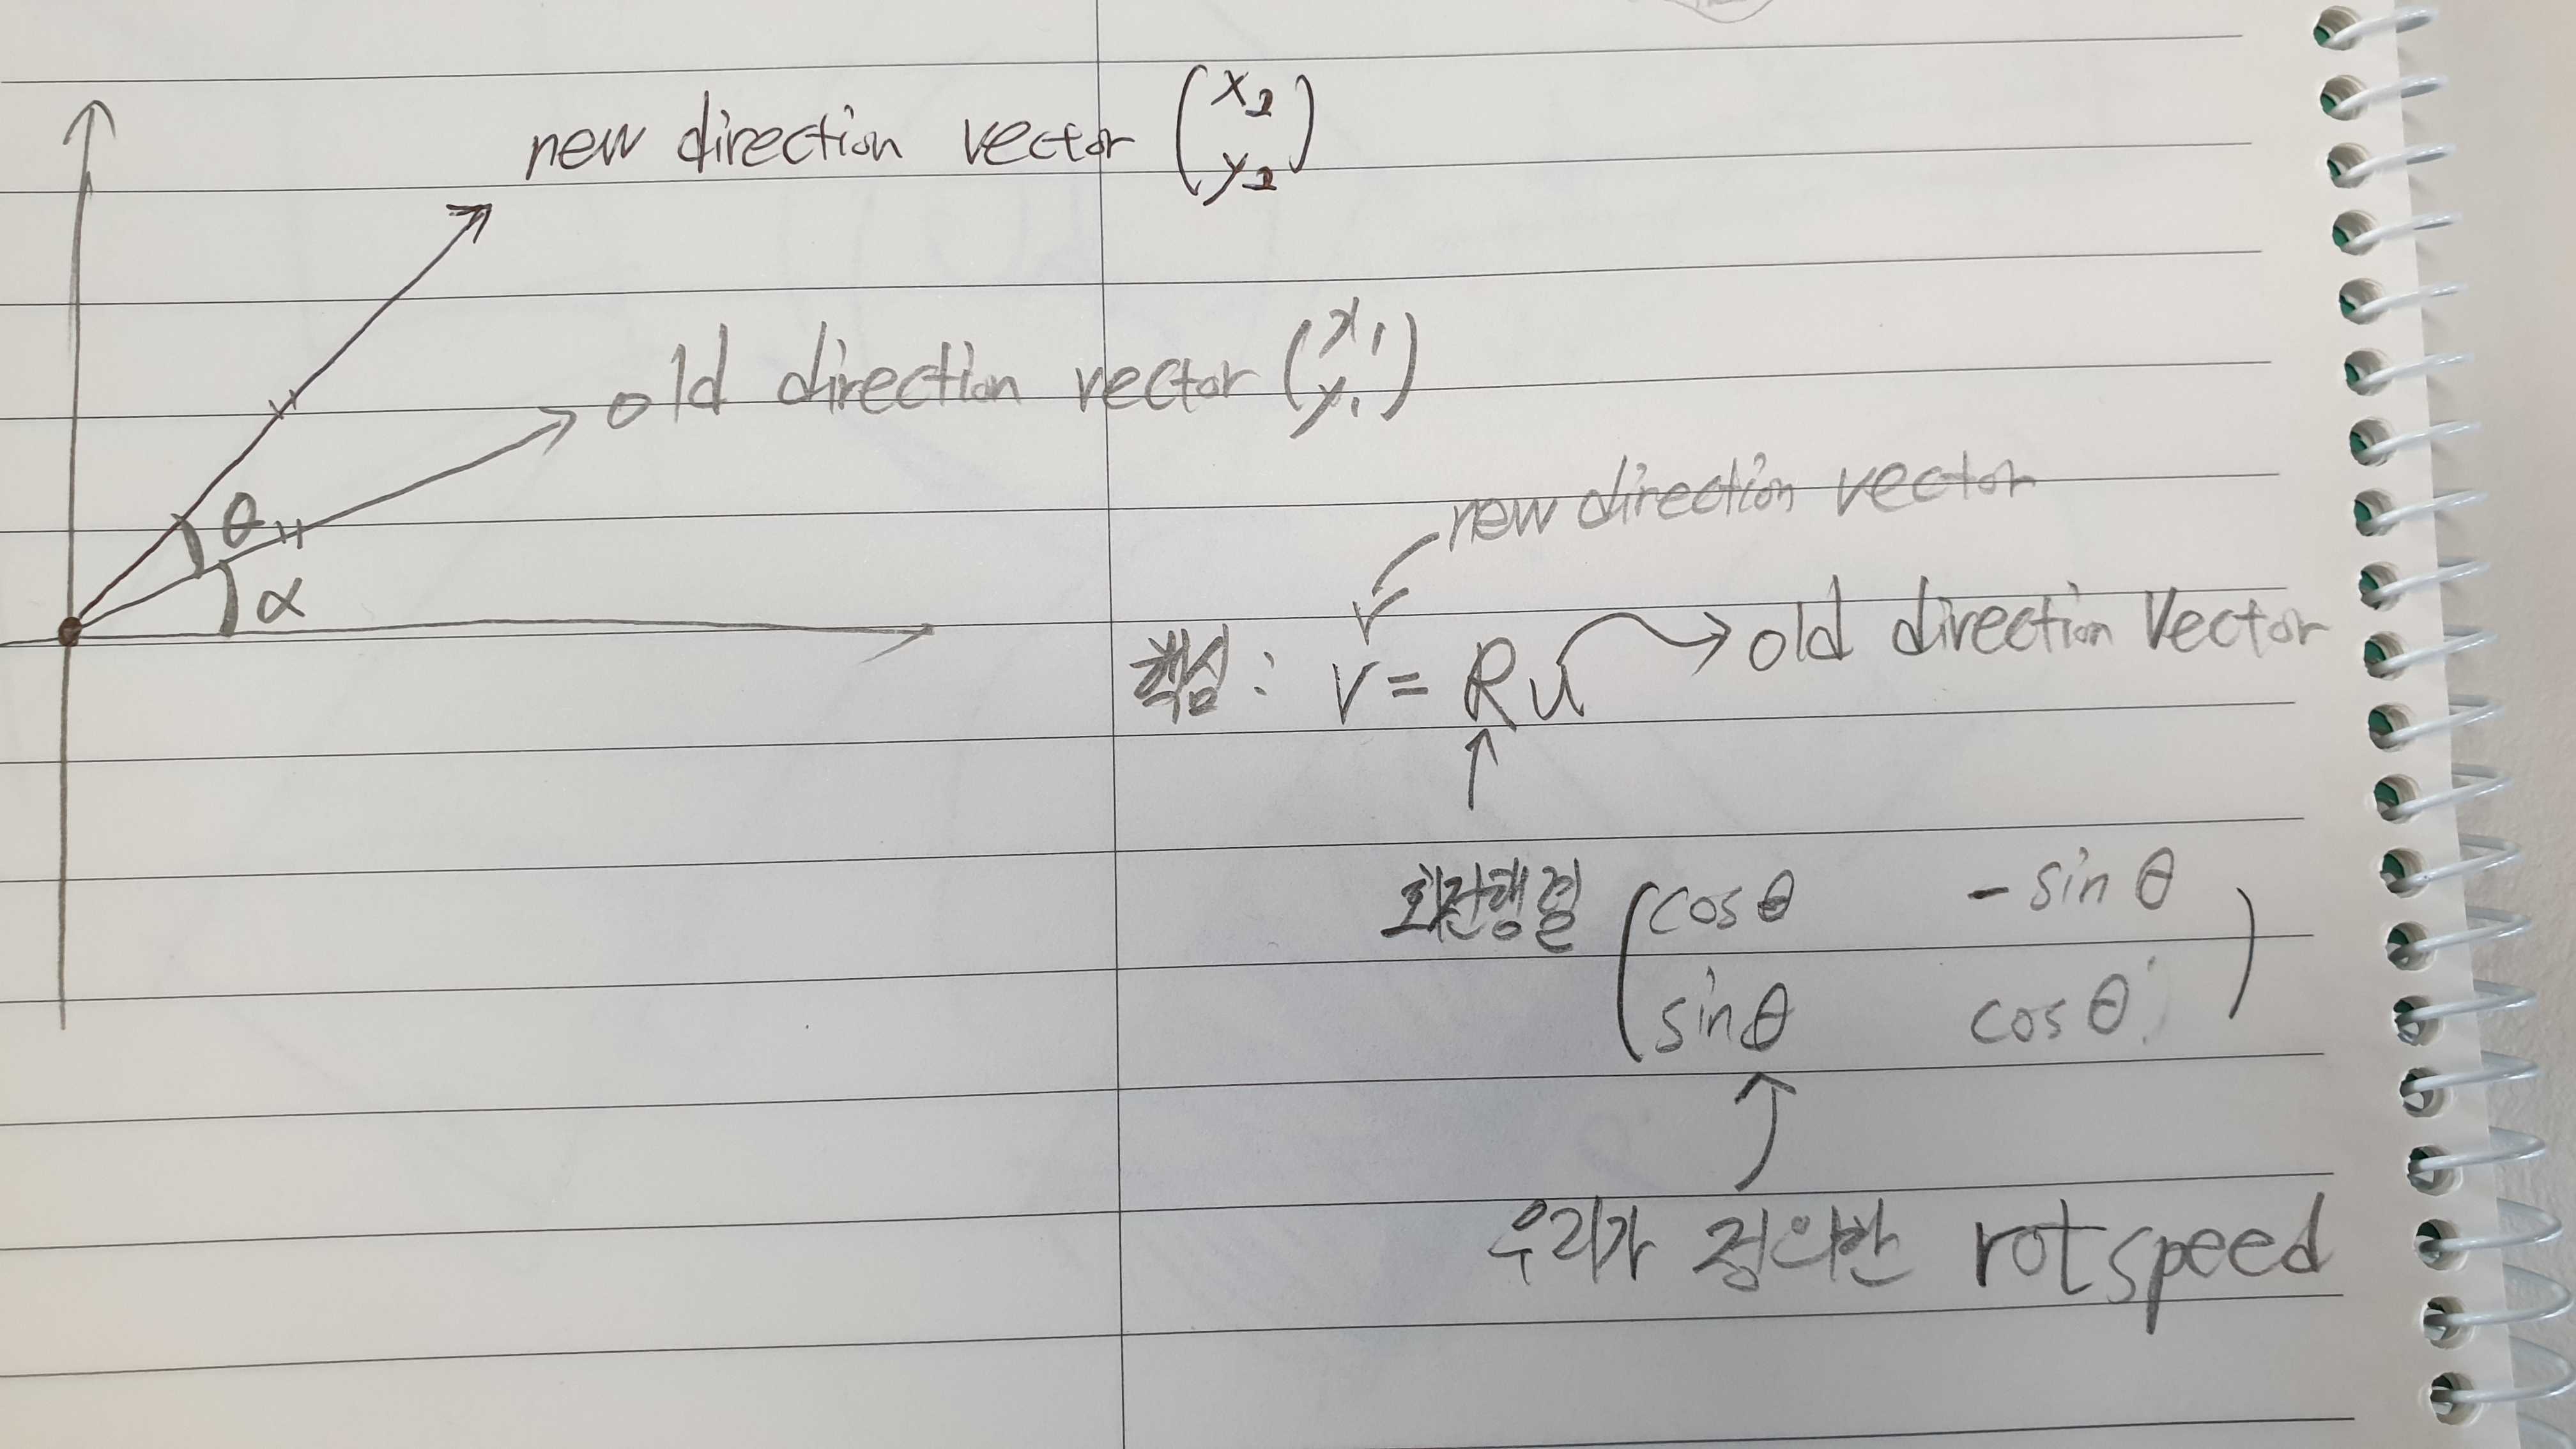 new direction vector (x₂
y₂)
old direction vector (x₁
y₁)
θ
α
new direction vector
핵심 : v = Ru → old direction vector
↑
회전행렬 (cosθ -sinθ
sinθ cosθ)
우리가 정의한 rotspeed